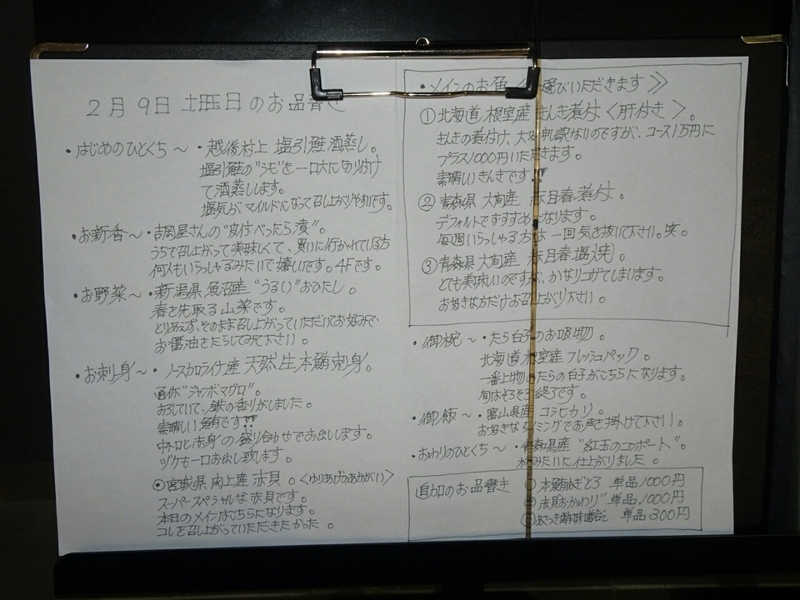 2月9日 土曜日のお品書き
・はじめのひとくち〜 ・越後村上 塩引鮭酒蒸し。
塩引鮭の"ラモ"を一口大に切り付け
て酒蒸しします。
塩気がマイルドになって召し上がりやすいです。
・お新香〜 ・吉岡屋さんの"皮付べったら漬"。
うちで召上がって美味しくて、買いに行かれている方
何人もいらっしゃるみたいで嬉しいです。4Fです。
・お野菜〜 ・新潟県 魚沼産"うるい"おひたし。
春を先取る山菜です。
とりあえず、そのまま召し上がっていただいてお好みで
お醤油をたらしてみて下さい。
・お刺身〜 ・ノースカロライナ産 天然生本鮪刺身。
通称"ジャンボマグロ"。
おろしていて、鉄の香りがしました。
素晴しい鮪です!!
中トロと赤身の盛り合わせでお出しします。
ヅケも一口お出し致します。
◉宮城県 閖上産 赤貝。<ゆりあげのあかがい>
スーパースペシャルな赤貝です。
本日のメインはこちらになります。
コレを召し上がっていただきたかった。
・メインのお魚 選びいただきます》
①北海道 根室産 きんき煮付<肝付き>。
きんきの煮付け、大変申し訳ないのですが、コース1万円に
プラス1000円いただきます。
素晴しいきんきです!!
②青森県 大間産 赤目春煮付。
デフォルトですすすめになります。
毎週いらっしゃる方は 一回気を抜いて下さい。笑。
③青森県 大間産 赤目春塩焼。
とても美味しいのですが、かなりコゲてしまいます。
お好きな方だけお召上がり下さい。
・御椀〜 ・たら白子のお吸物。
北海道 根室産 フレッシュパック。
一番上物のたらの白子がこちらになります。
旬はそろそろ終了です。
・御飯〜 ・富山県産 コシヒカリ。
お好きなタイミングでお声を掛けて下さい。
・おわりのひとくち〜 ・青森県産"紅玉のコンポート"。
みたいに仕上がりました。
追加のお品書き ①本鮪ねぎとろ 単品1000円
②赤貝おかわり 単品1000円
単品300円